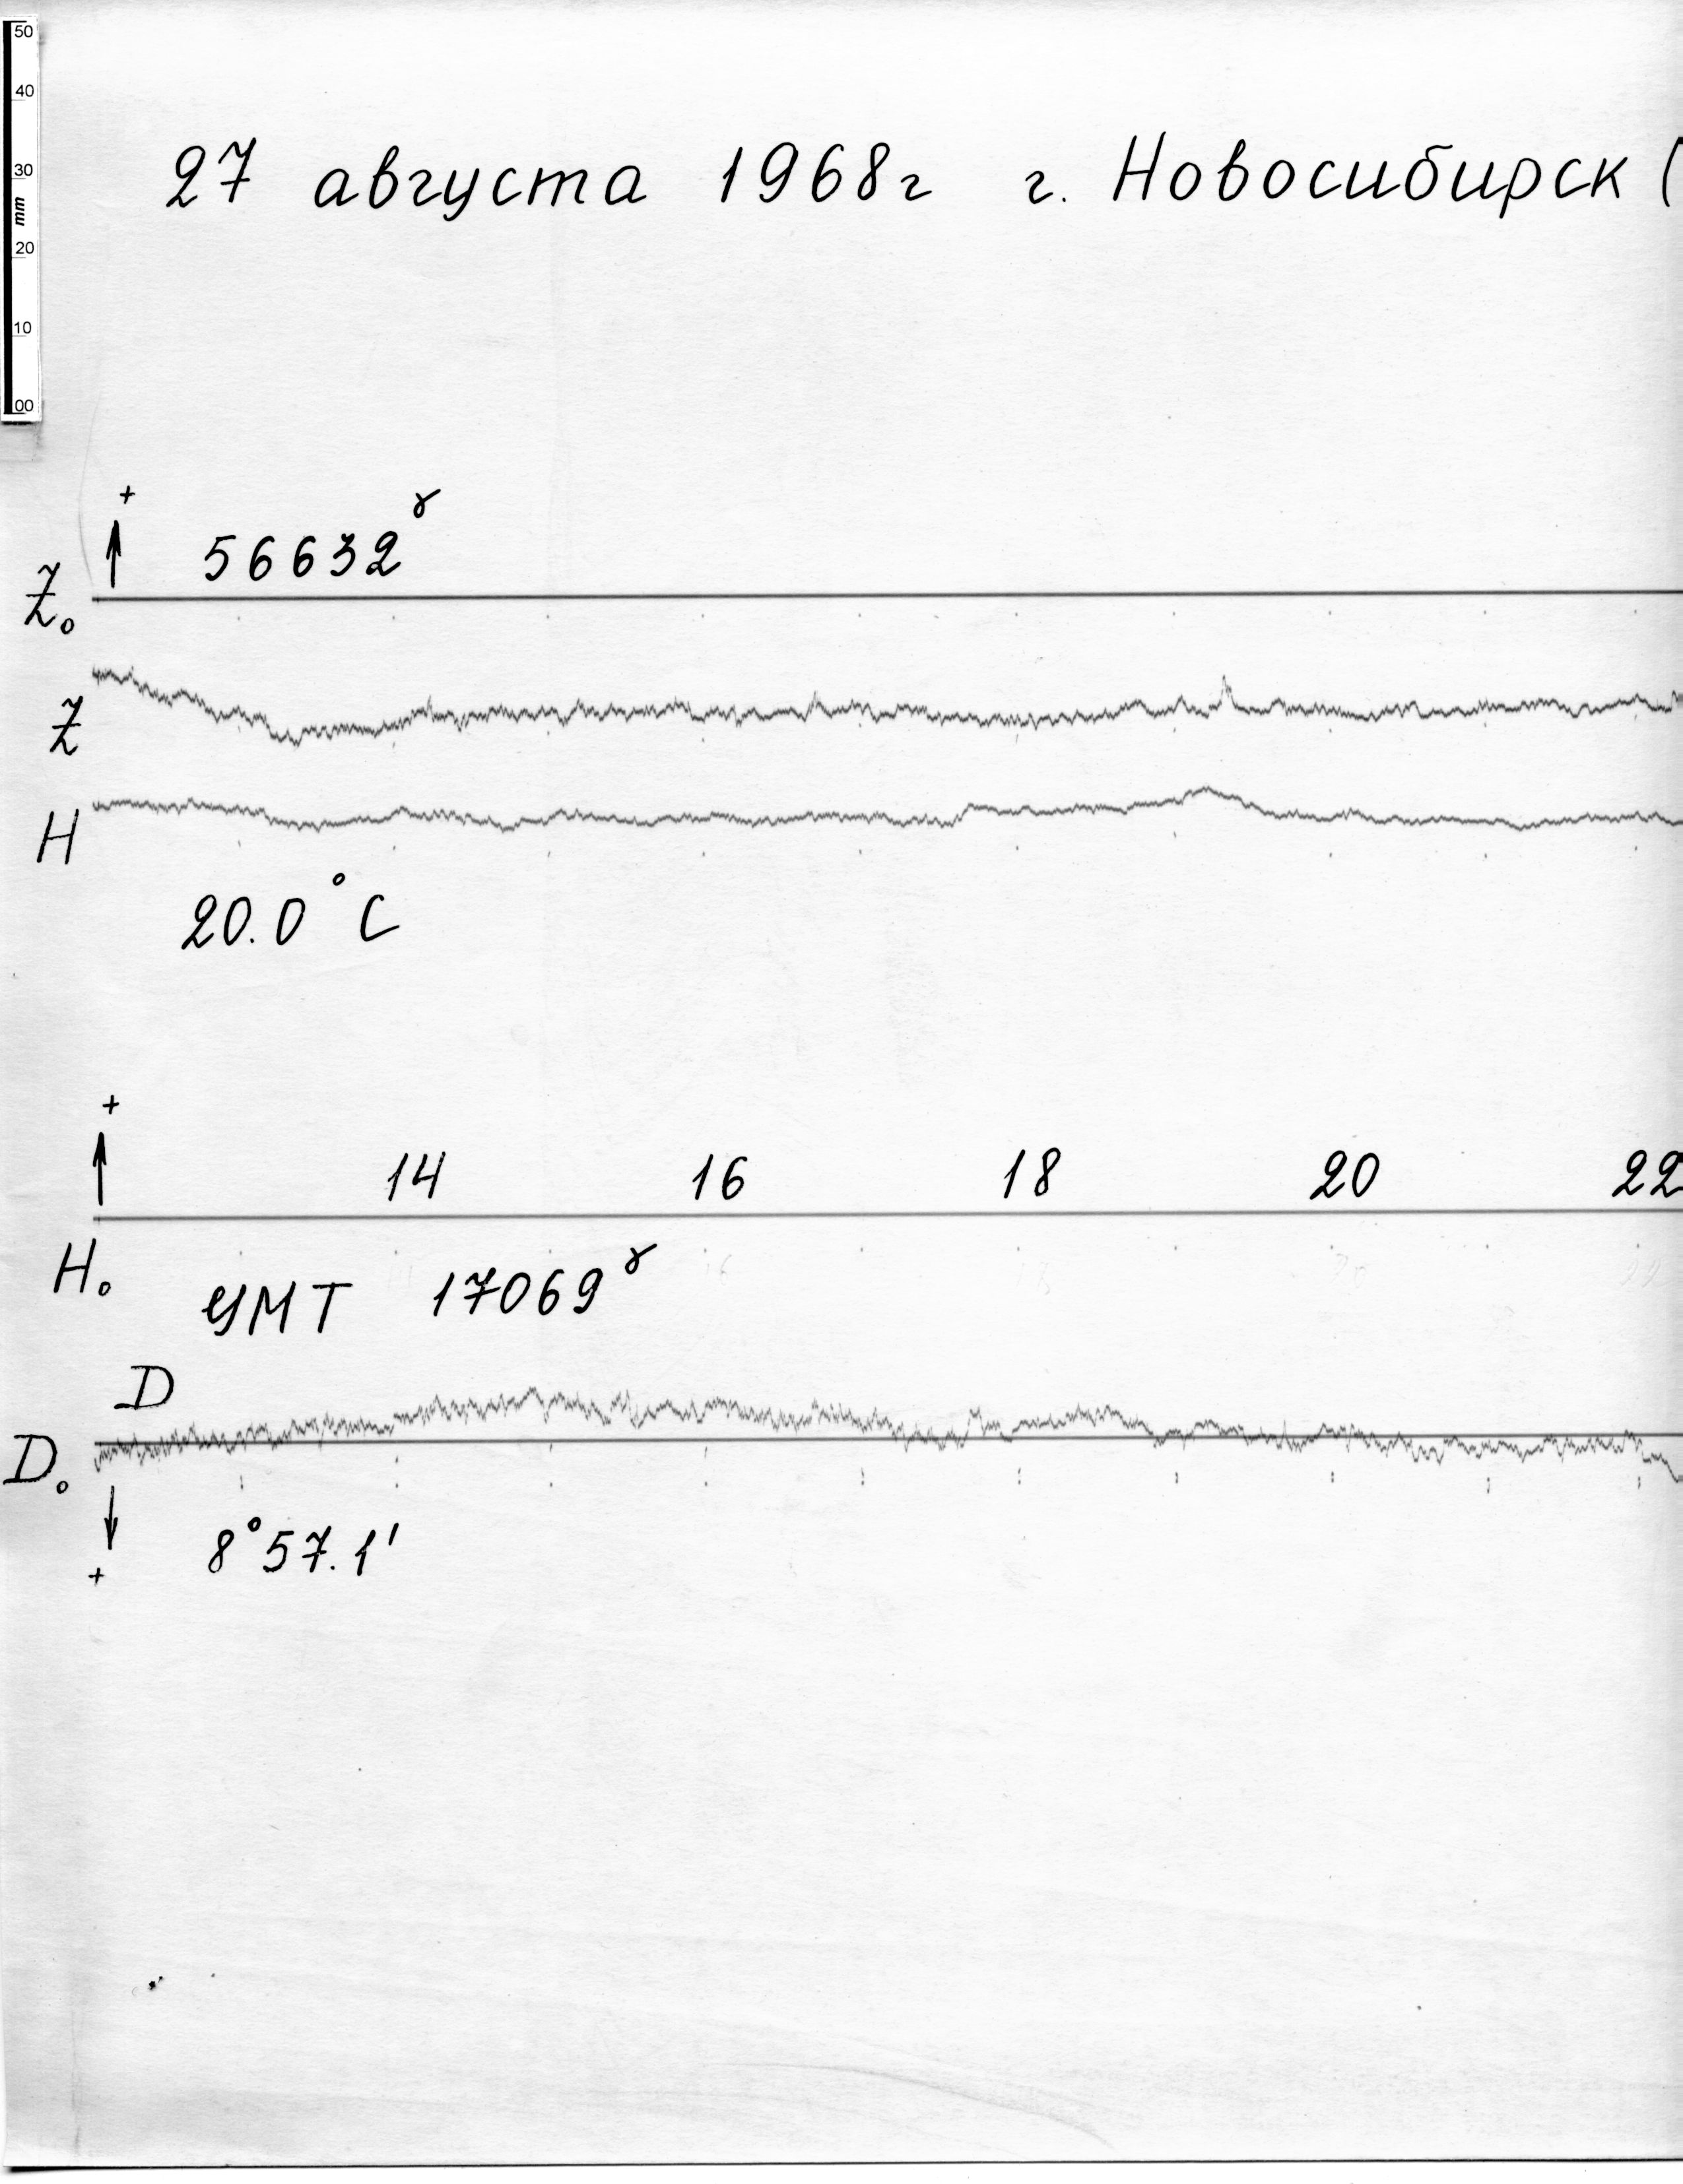 50
40
30
mm
20
10
00
27 августа 1968г г. Новосибирск (
+
56632ᵞ
Z₀
Z
H
20.0°C
+
14 16 18 20 22
H₀
УМТ 17069ᵞ
D
D₀
8°57.1'
+